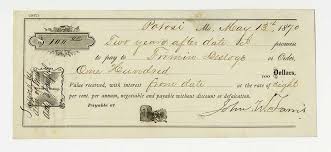 Potosi Mo, May 13th 1870
$100.00
Two years after date I promise
to pay to Firmin Desloge or Order,
One Hundred Dollars,
Value received, with interest from date at the rate of eight
per cent. per annum, negotiable and payable without discount or defalcation.
Payable at
John W. Harris